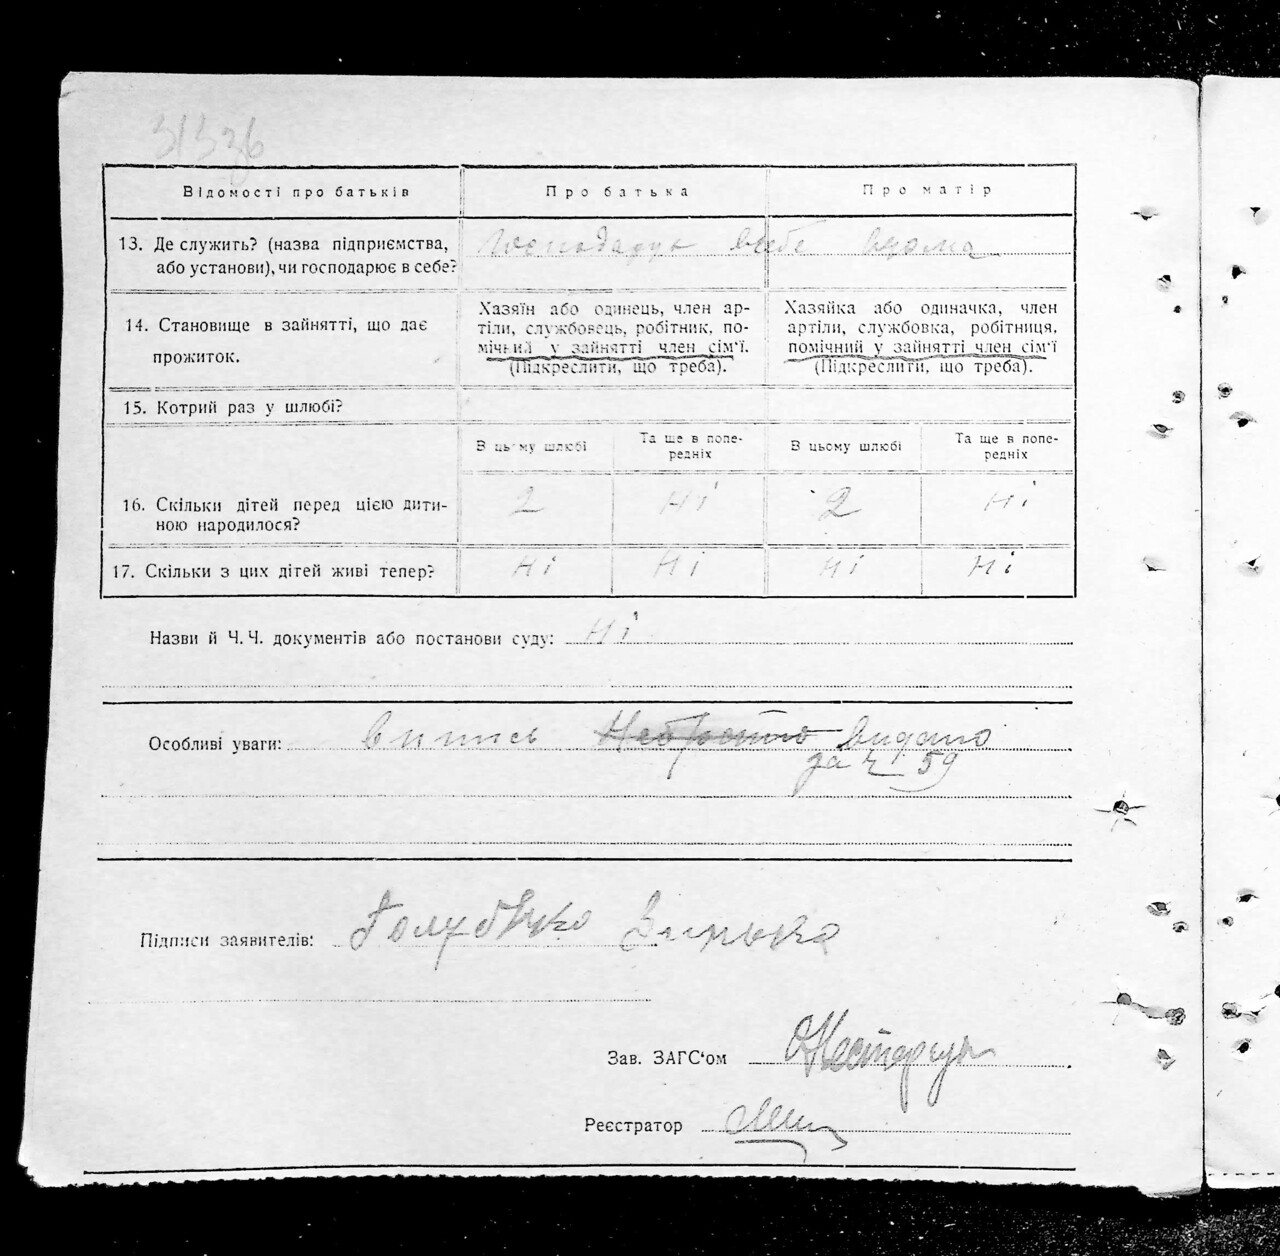 31336
Відомості про батьків
Про батька
Про матір
13. Де служить? (назва підприємства,
або установи), чи господарює в себе?
вдома
14. Становище в зайнятті, що дає
прожиток.
Хазяїн або одинець, член ар-
тіли, службовець, робітник, по-
мічний у зайнятті член сім'ї.
(Підкреслити, що треба).
Хазяйка або одиначка, член
артіли, службовка, робітниця,
помічний у зайнятті член сім'ї
(Підкреслити, що треба).
15. Котрий раз у шлюбі?
В цьому шлюбі
Та ще в попе-
редніх
В цьому шлюбі
Та ще в попе-
редніх
16. Скільки дітей перед цією дити-
ною народилося?
2 Ні 2 Ні
17. Скільки з цих дітей живі тепер?
Ні Ні Ні Ні
Назви й Ч. Ч. документів або постанови суду: Ні
Особливі уваги: випись видано
за ч 59
Підписи заявителів: Голубенко
Зав. ЗАГС'ом
Реєстратор